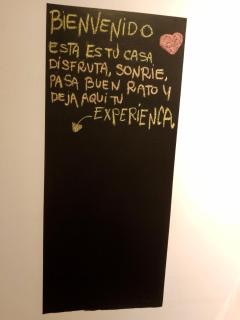 BIENVENIDO
ESTA ES TU CASA
DISFRUTA, SONRIE,
PASA BUEN RATO Y
DEJA AQUI TU
EXPERIENCA